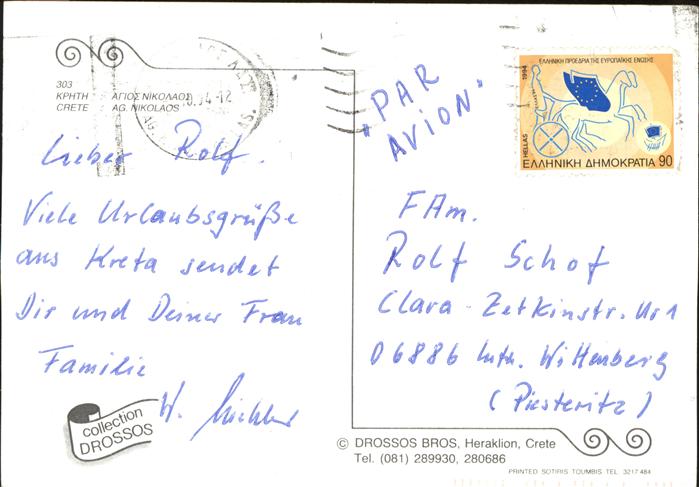 303
ΚΡΗΤΗ ΑΓΙΟΣ ΝΙΚΟΛΑΟΣ
CRETE AG. NIKOLAOS
Lieber Rolf.
Viele Urlaubsgrüße
aus Kreta sendet
Dir und Deiner Frau
Familie
W.
collection
DROSSOS
"PAR
AVION"
ΕΛΛΗΝΙΚΗ ΠΡΟΕΔΡΙΑ ΤΗΣ ΕΥΡΩΠΑΪΚΗΣ ΕΝΩΣΗΣ
1994
HELLAS
ΕΛΛΗΝΙΚΗ ΔΗΜΟΚΡΑΤΙΑ 90
FAm.
Rolf Schof
Clara-Zetkinstr. Nr 1
06886 Luth. Wittenberg
(Piesteritz)
© DROSSOS BROS, Heraklion, Crete
Tel. (081) 289930, 280686
PRINTED SOTIRIS TOUMBIS TEL. 3217 484